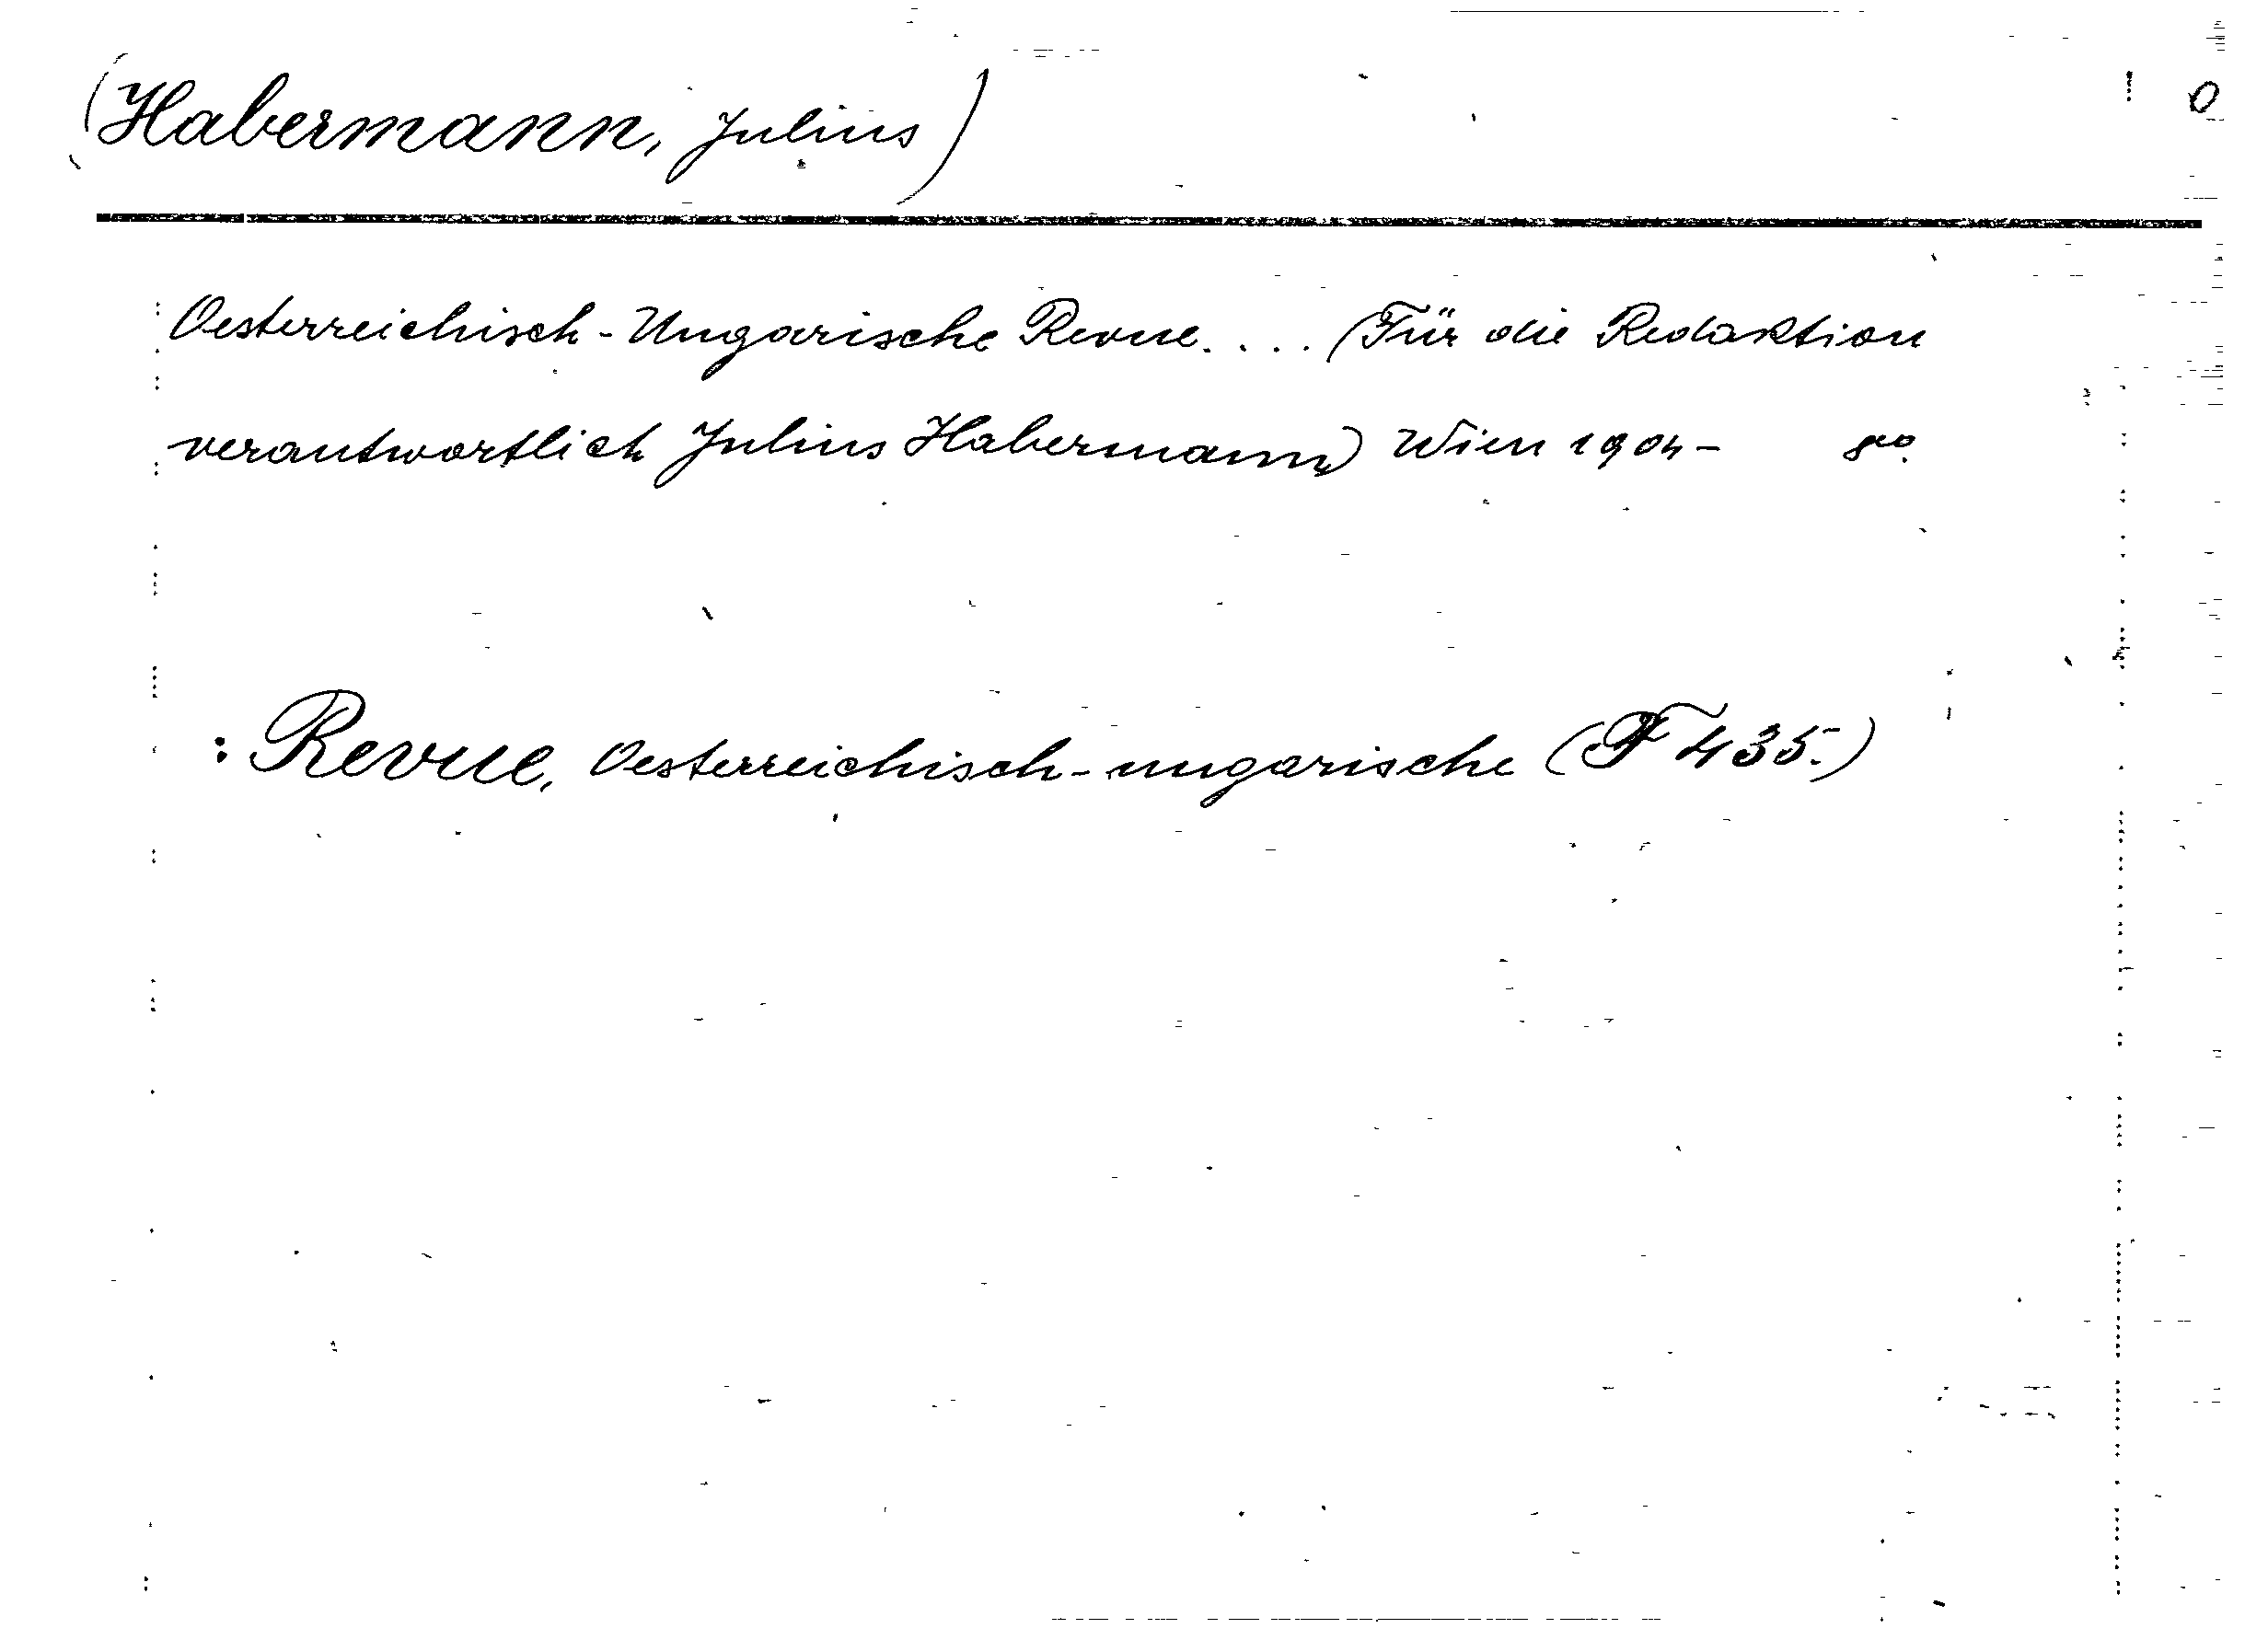 (Habermann, Julius)
Oesterreichisch-Ungarische Revue.... (Für die Redaktion
verantwortlich Julius Habermann) Wien 1904- 8vo.
: Revue, Oesterreichisch-ungarische (F 435.)